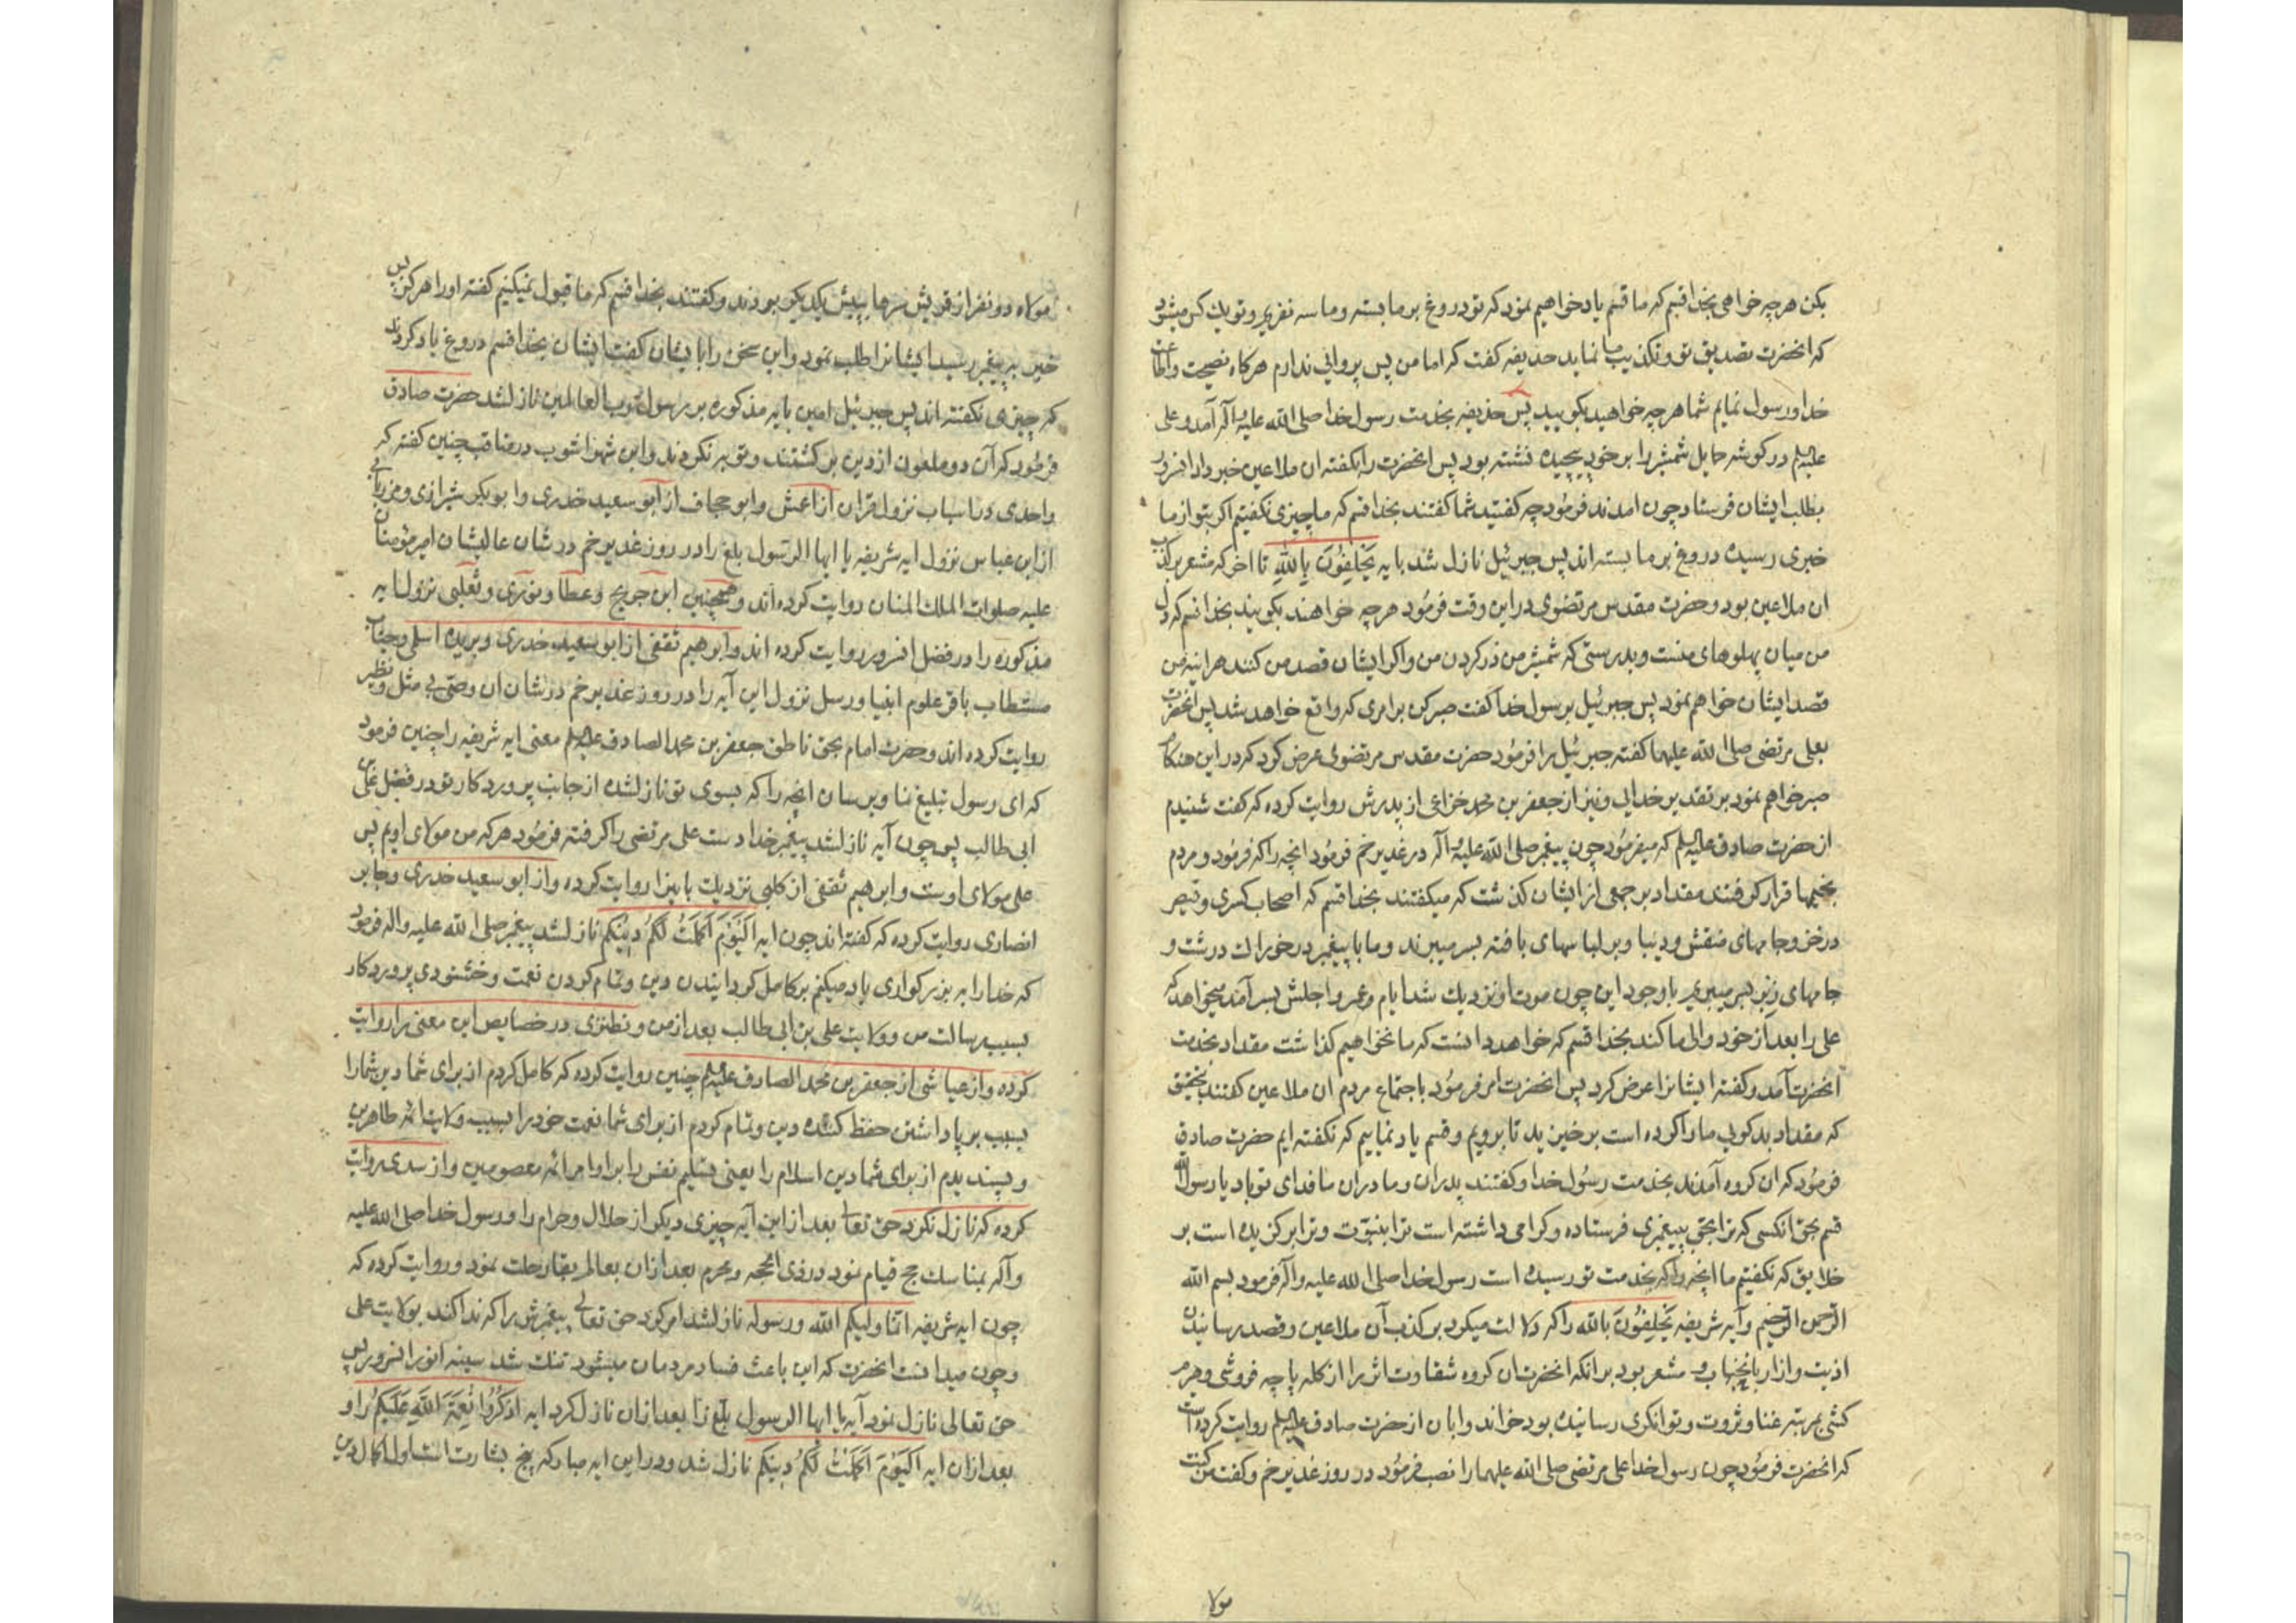 بکن هرچه خواهی بخدا قسم که ما قسم یاد خواهیم نمود که تو دروغ بر ما بسته و ما سه نفریم و تو یک کس میشود
که انحضرت تصدیق تو و تکذیب ما نماید حذیفه کفت که اما من پس پروائی ندارم هرکاه نصیحت و اطاعت
خدا و رسول نمایم شما هرچه خواهید بکویید پس حذیفه بخدمت رسول خدا صلی الله علیه و آله آمد و علی
علیه السلم در کوشه حمایل شمشیر را بر خود پیچیده نشسته بود پس انحضرت را بکفته ان ملاعین خبر داد انسرور
بطلب ایشان فرستاد چون امدند فرمود چه کفتید شما کفتند بخدا قسم که ما چیزی نکفتیم اکر بتو از ما
خبری رسیده دروغ بر ما بسته اند پس جبرئیل نازل شد بایه یَحْلِفُونَ بِاللّٰهِ تا اخر که مشعر بر کذب
ان ملاعین بود و حضرت مقدس مرتضوی در این وقت فرمود هرچه خواهند بکویند بخدا قسم که دل
من میان پهلوهای منست و بدرستی که شمشیر من در کردن من و اکر ایشان قصد من کنند هراینه من
قصد ایشان خواهم نمود پس جبرئیل برسول خدا کفت صبر کن برامری که واقع خواهد شد پس انحضرت
بعلی مرتضی صلی الله علیهما کفته جبرئیل را فرمود حضرت مقدس مرتضوی عرض کرد که در این هنکام
صبر خواهم نمود بر تقدیر خدایی و نیز از جعفر بن محمد خزاعی از پدرش روایت کرده که کفت شنیدم
از حضرت صادق علیه السلم که میفرمود چون پیغمبر صلی الله علیه و آله در غدیر خم فرمود انچه را که فرمود و مردم
بخیمها قرار کرفتند مقداد بر جمعی از ایشان کذشت که میکفتند بخدا قسم که اصحاب کسری و قیصر
در خز و جامهای منقش و دیبا و بر لباسهای بافته بسر میبرند و ما با پیغمبر در خوراک درشت و
جامهای زبر بسر میبریم با وجود این چون موت او نزدیک شد ایام و عمر و اجلش بسر آمد میخواهد که
علی را بعد از خود والی ما کند بخدا قسم که خواهد دانست که ما نخواهیم کذاشت مقداد بخدمت
انحضرت آمد و کفته ایشانرا عرض کرد پس انحضرت امر فرمود باجتماع مردم ان ملاعین کفتند بتحقیق
که مقداد بدکویی ما را کرده است برخیزید تا برویم و قسم یاد نماییم که نکفته ایم حضرت صادق
فرمود که ان کروه آمدند بخدمت رسول خدا و کفتند پدران و مادران ما فدای تو باد یا رسول الله
قسم بحق انکسی که ترا بحق بپیغمبری فرستاده و کرامی داشته است ترا بنبوّت و ترا برکزیده است بر
خلایق که نکفتیم ما انچه را که بخدمت تو رسیده است رسول خدا صلی الله علیه و آله فرمود بسم الله
الرّحمن الرّحیم و آیه شریفه یَحْلِفُونَ بِاللّٰه را که دلالت میکرد بر کذب آن ملاعین و قصد رسانیدن
اذیت و ازار بانجناب و مشعر بود بر انکه انحضرت ان کروه شقاوت اثر را از کله پاچه فروشی و هرم
کشی بمرتبه غنا و ثروت و توانکری رسانیده بود خواند و ابان از حضرت صادق علیه السلم روایت کرده است
که انحضرت فرمود چون رسول خدا علی مرتضی صلی الله علیهما را نصب فرمود در روز غدیر خم و کفت من کنت
مولا
مولاه دو نفر از قریش سرها بپیش یکدیکر بردند و کفتند بخدا قسم که ما قبول نمیکنیم کفته او را هرکز پس
خبر به پیغمبر رسید ایشانرا طلب نمود و این سخن را با ایشان کفت ایشان بخدا قسم دروغ یاد کردند
که چیزی نکفته اند پس جبرئیل امین بایه مذکوره بر رسول رب العالمین نازلشد حضرت صادق
فرمود که آن دو ملعون از دین برکشتند و توبه نکردند و ابن شهراشوب در مناقب چنین کفته که
واحدی در اسباب نزول قران از اعمش و ابو حجاف از ابو سعید خدری و ابو بکر شیرازی و مرزبانی
از ابن عباس نزول ایه شریفه یا ایها الرّسول بلغ را در روز غدیر خم در شان عالیشان امیر مؤمنان
علیه صلوات الملک المنان روایت کرده اند و همچنین ابن جریح و عطا و ثوری و ثعلبی نزول ایه
مذکوره را در فضل انسرور روایت کرده اند و ابرهیم ثقفی از ابو سعید خدری و بریده اسلمی و جناب
مستطاب باقر علوم انبیا و رسل نزول این آیه را در روز غدیر خم در شان ان وصی بی مثل و نظیر
روایت کرده اند و حضرت امام بحق ناطق جعفر بن محمد الصادق علیه السلم معنی ایه شریفه را چنین فرمود
که ای رسول تبلیغ نما و برسان انچه را که بسوی تو نازلشده از جانب پروردکار تو در فضل علی بن
ابی طالب پس چون آیه نازلشد پیغمبر خدا دست علی مرتضی را کرفته فرمود هرکه من مولای اویم پس
علی مولای اوست و ابرهیم ثقفی از کلبی نزدیک باینرا روایت کرده و از ابو سعید خدری و جابر
انصاری روایت کرده که کفته اند چون ایه اَلْیَوْمَ اَکْمَلْتُ لَکُمْ دِینَکُمْ نازلشد پیغمبر صلی الله علیه و اله فرمود
که خدا را به بزرکواری یاد میکنم بر کامل کردانیدن دین و تمام کردن نعمت و خشنودی پروردکار
بسبب رسالت من و ولایت علی بن ابی طالب بعد از من و نطنزی در خصایص این معنی را روایت
کرده و از عیاشی از جعفر بن محمد الصادق علیه السلم چنین روایت کرده که کامل کردم از برای شما دین شما را
بسبب برپا داشتن حفظ کننده دین و تمام کردم از برای شما نعمت خود را بسبب ولایت ائمه طاهرین
و پسندیدم از برای شما دین اسلام را یعنی تسلیم نفس را بر اوامر ائمه معصومین و از سدی روایت
کرده که نازل نکرد حق تعالی بعد از این آیه چیزی دیکر از حلال و حرام را و رسول خدا صلی الله علیه
و آله بمناسک حج قیام نمود در ذی الحجه و محرم بعد از ان بعالم بقا رحلت نمود و روایت کرده که
چون ایه شریفه انّما ولیکم الله و رسوله نازلشد امر کرد حق تعالی پیغمبرش را که ندا کند بولایت علی
و چون میدانست انحضرت که این باعث فساد مردمان میشود تنک شد سینه انور انسرور پس
حق تعالی نازل نمود آیه یا ایها الرسول بلّغ را بعد از ان نازل کرد ایه اذْکُرُوا نِعْمَةَ اللّٰهِ عَلَیْکُم را و
بعد از ان ایه اَلْیَوْمَ اَکْمَلْتُ لَکُمْ دینکم نازل شد و در این ایه مبارکه پنج بشارت است اول اکمال دین